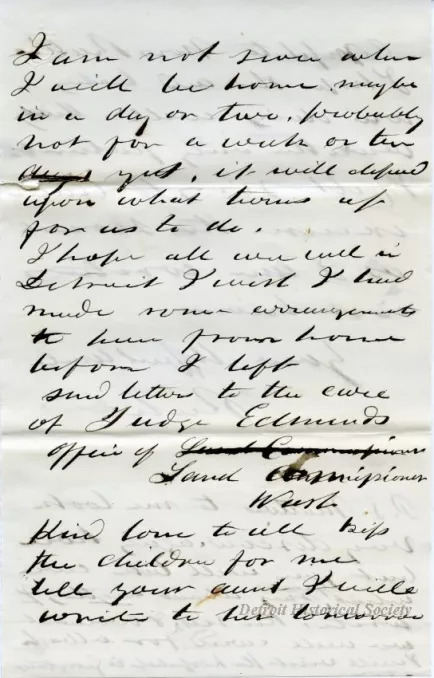 I am not sure when
I will be home maybe
in a day or two, probably
not for a week or ten
days yet, it will depend
upon what turns up
for us to do.
I hope all are well in
Detroit I wish I had
made some arrangements
to hear from home
before I left
send letters to the care
of Judge Edmunds
Office of Land Commissioner
Land Commissioner
Wash
Kind love to all kiss
the children for me
tell your aunt I will
write to her tomorrow
Detroit Historical Society